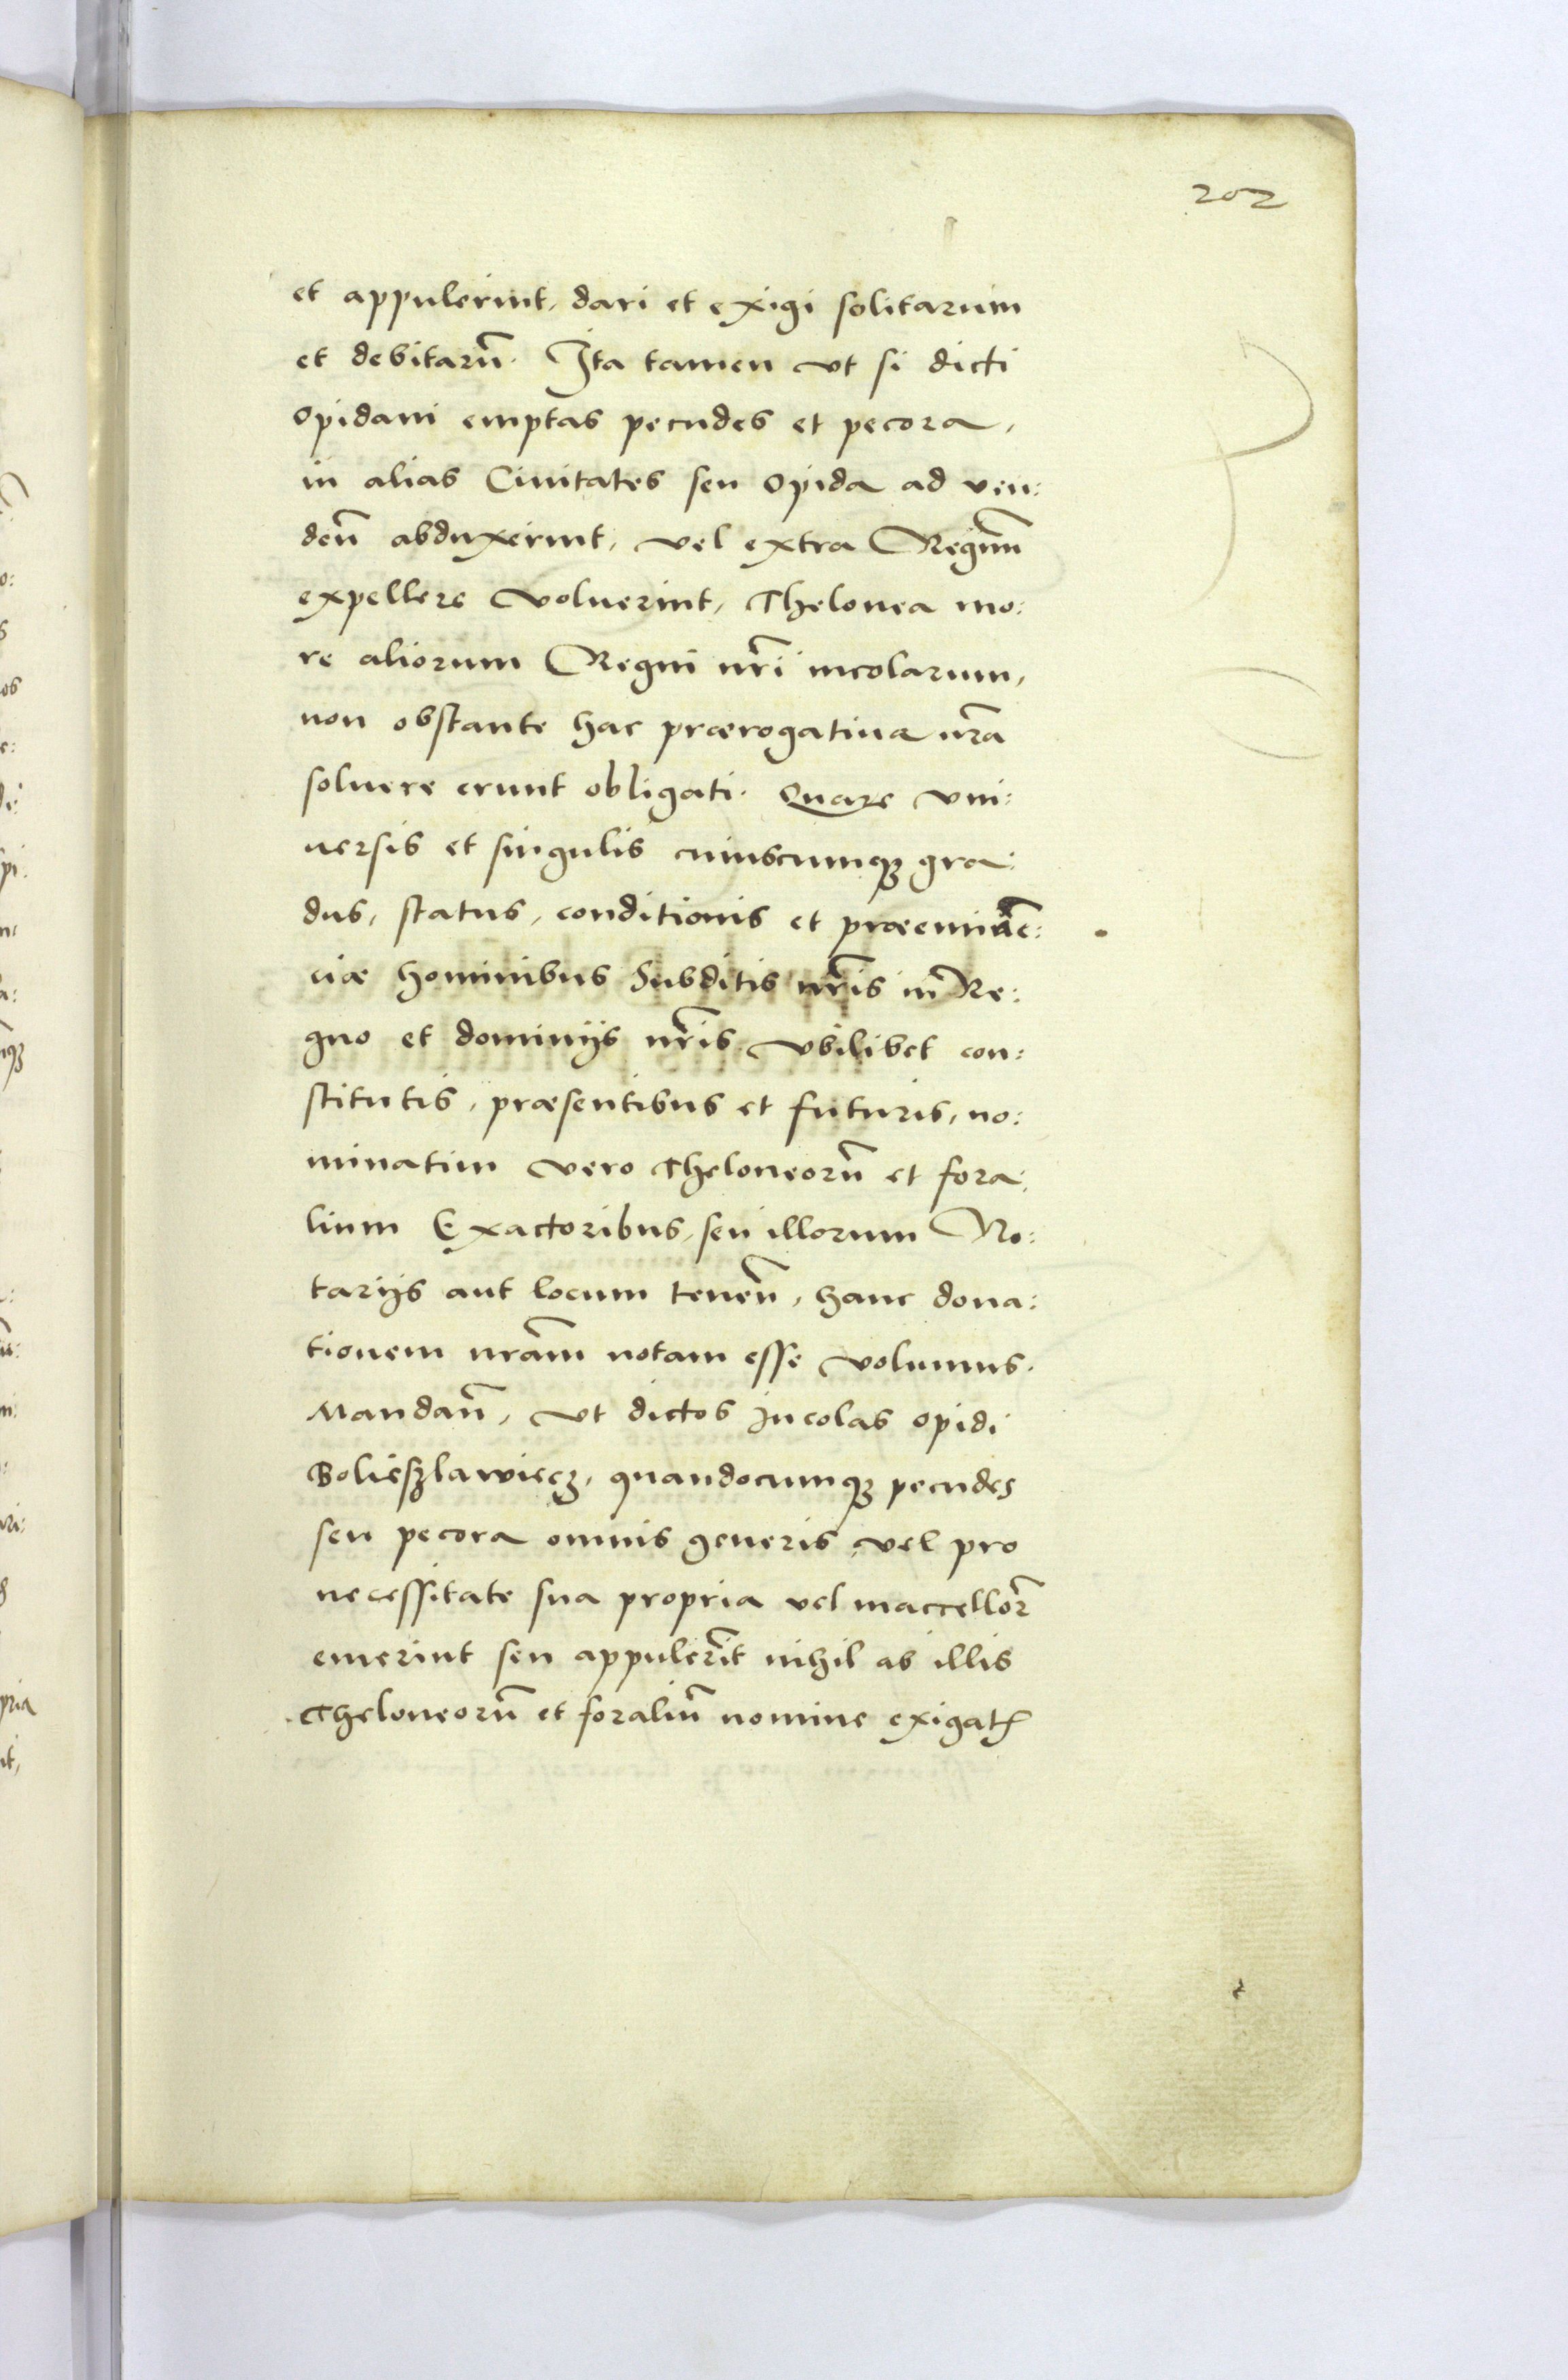 202
et appulerint, dari et exigi solitarum
et debitarū. Ita tamen vt si dicti
Opidani emptas pecudes et pecora,
in alias Ciuitates seu Opida ad ven:
deñ abduxerint, vel extra Regnum̄
expellere voluerint, Thelonea mo:
re aliorum Regni nr̄i incolarum,
non obstante hac prærogatiua nr̄a
soluere erunt obligati. Quare vni:
uersis et singulis cuiuscumqȝ gra:
dus, status, conditionis et præeminē:
ciæ hominibus Subditis nr̄is in Re:
gno et dominijs nr̄is vbilibet con:
stitutis, præsentibus et futuris, no:
minatim vero Theloneorū et fora:
lium Exactoribus, seu illorum No:
tarijs aut locum teneñ, hanc dona:
tionem nr̄am notam esse volumus.
Mandañ, vt dictos Incolas opidi
Bolieszlawiecz, quandocumqȝ pecudes
seu pecora omnis generis, vel pro
necessitate sua propria vel maccellor̄
emerint seu appuler̄it nihil ab illis
Theloneorū et foraliū nomine exigatꝭ